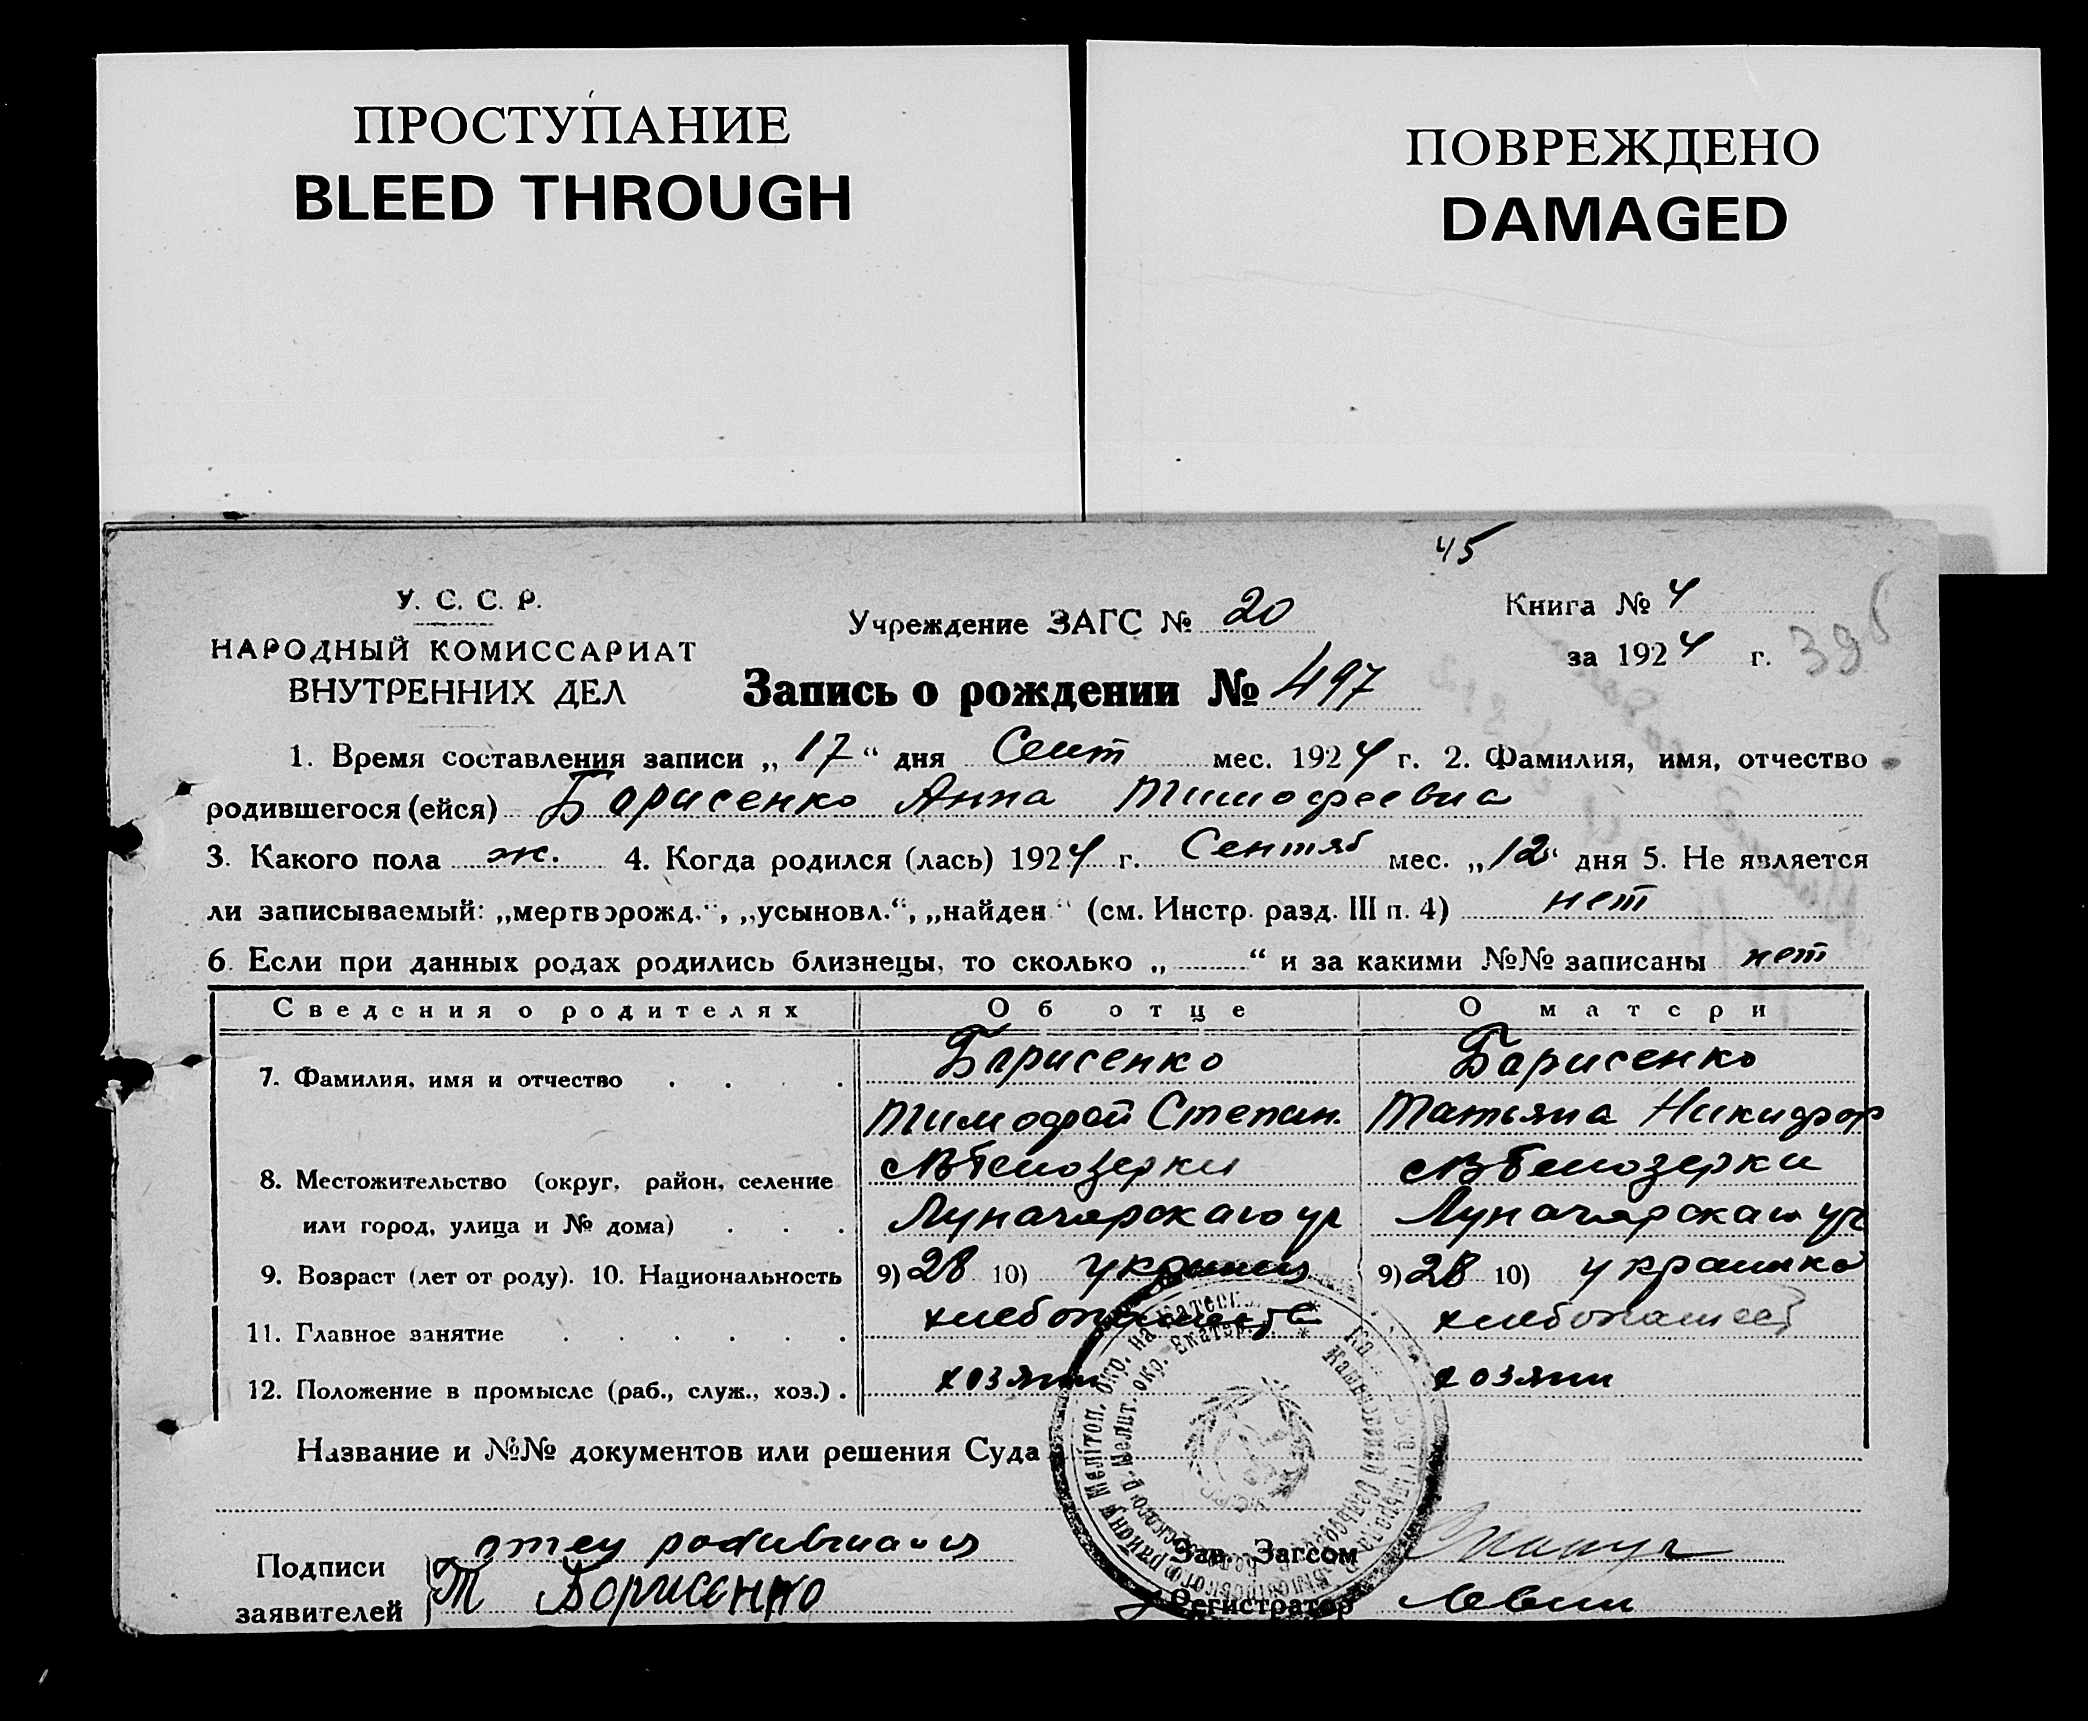 ПРОСТУПАНИЕ
BLEED THROUGH
ПОВРЕЖДЕНО
DAMAGED
45
У. С. С. Р.
НАРОДНЫЙ КОМИССАРИАТ
ВНУТРЕННИХ ДЕЛ
Учреждение ЗАГС № 20
Книга № 4
за 1924 г.
39
Запись о рождении № 497
1. Время составления записи „17“ дня Сент мес. 1924 г. 2. Фамилия, имя, отчество
родившегося (ейся) Борисенко Анна Тимофеевна
3. Какого пола ж. 4. Когда родился (лась) 1924 г. Сентяб мес. „12“ дня 5. Не является
ли записываемый: „мертворожд.“, „усыновл.“, „найден“ (см. Инстр. разд. III п. 4) нет
6. Если при данных родах родились близнецы, то сколько „ “ и за какими №№ записаны нет
Сведения о родителях Об отце О матери
7. Фамилия, имя и отчество Борисенко Борисенко
Тимофей Степан. Татьяна Никифор
8. Местожительство (округ, район, селение Белозерки Белозерки
или город, улица и № дома) Луначарскаго ул Луначарскаго ул
9. Возраст (лет от роду). 10. Национальность 9) 28 10) 9) 28 10) украинка
11. Главное занятие хлебопашест хлебопашест
12. Положение в промысле (раб., служ., хоз.) хозяин хозяин
Название и №№ документов или решения Суда
Подписи
заявителей
отец
Т Борисенко
Зав. Загсом
Регистратор Левин